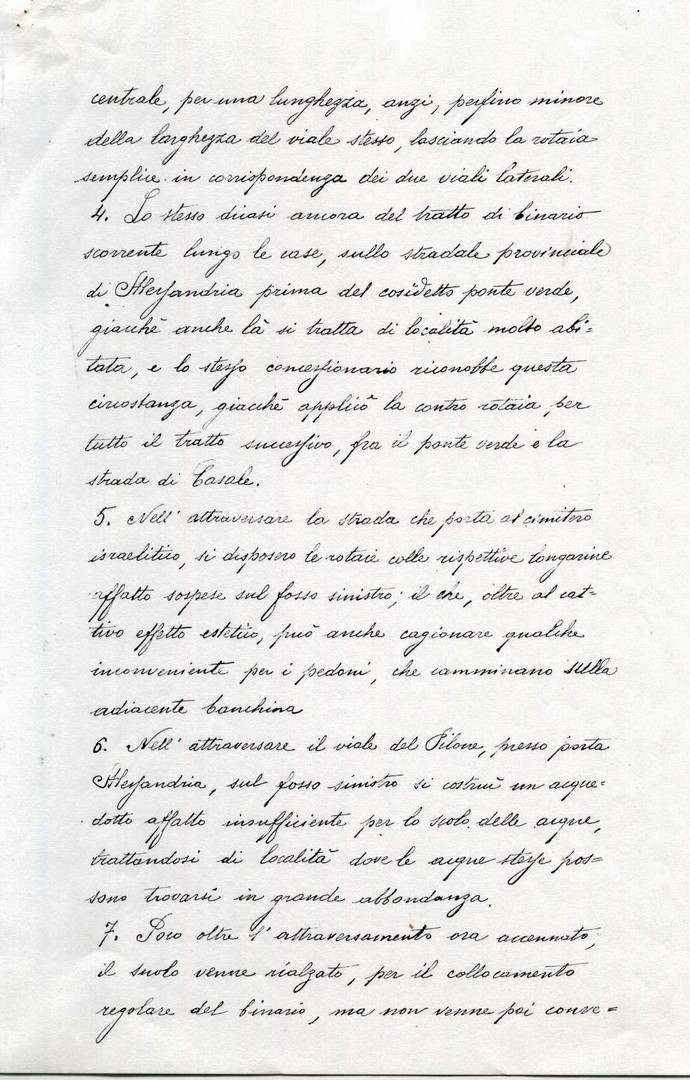 centrale, per una lunghezza, anzi, perfino minore
della larghezza del viale stesso, lasciando la rotaia
semplice in corrispondenza dei due viali laterali.
4. Lo stesso dicasi ancora del tratto di binario
scorrente lungo le case, sullo stradale provinciale
di Alessandria prima del cosidetto ponte verde,
giacchè anche là si tratta di località molto abi=
tata, e lo stesso concessionario riconobbe questa
circostanza, giacchè applicò la contro rotaia, per
tutto il tratto successivo, fra il ponte verde e la
strada di Casale.
5. Nell' attraversare la strada che porta al cimitero
israelitico, si disposero le rotaie colle rispettive longarine
affatto sospese sul fosso sinistro; il che, oltre al cat=
tivo effetto estetico, può anche cagionare qualche
inconveniente per i pedoni, che camminano sulla
adiacente banchina
6. Nell' attraversare il viale del Pilone, presso porta
Alessandria, sul fosso sinistro si costruì un acque=
dotto affatto insufficiente per lo scolo delle acque,
trattandosi di località dove le acque stesse pos=
sono trovarsi in grande abbondanza.
7. Poco oltre l' attraversamento ora accennato,
il suolo venne rialzato, per il collocamento
regolare del binario, ma non venne poi conve=